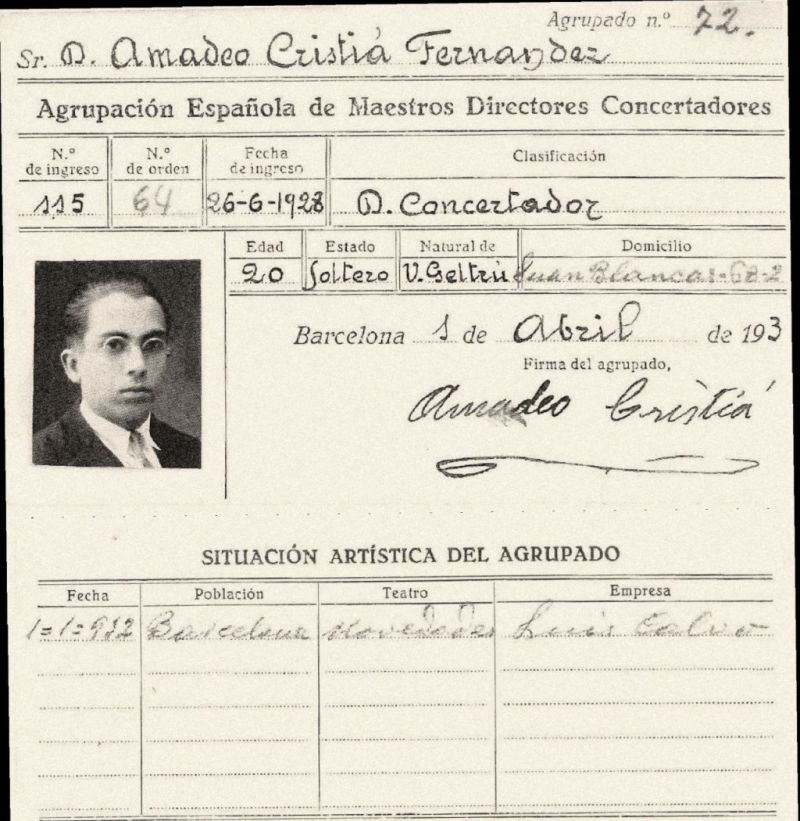 Agrupado n.º 72.
Sr. D. Amadeo Cristiá Fernandez
Agrupación Española de Maestros Directores Concertadores
N.º de ingreso N.º de orden Fecha de ingreso Clasificación
115 64 26-6-1928 D. Concertador
Edad Estado Natural de Domicilio
20 Soltero V. Geltrú Juan Blancas-68-2
Barcelona 1 de Abril de 193
Firma del agrupado,
Amadeo Cristiá
SITUACIÓN ARTÍSTICA DEL AGRUPADO
Fecha Población Teatro Empresa
1=1=932 Barcelona Novedades Luis Calvo